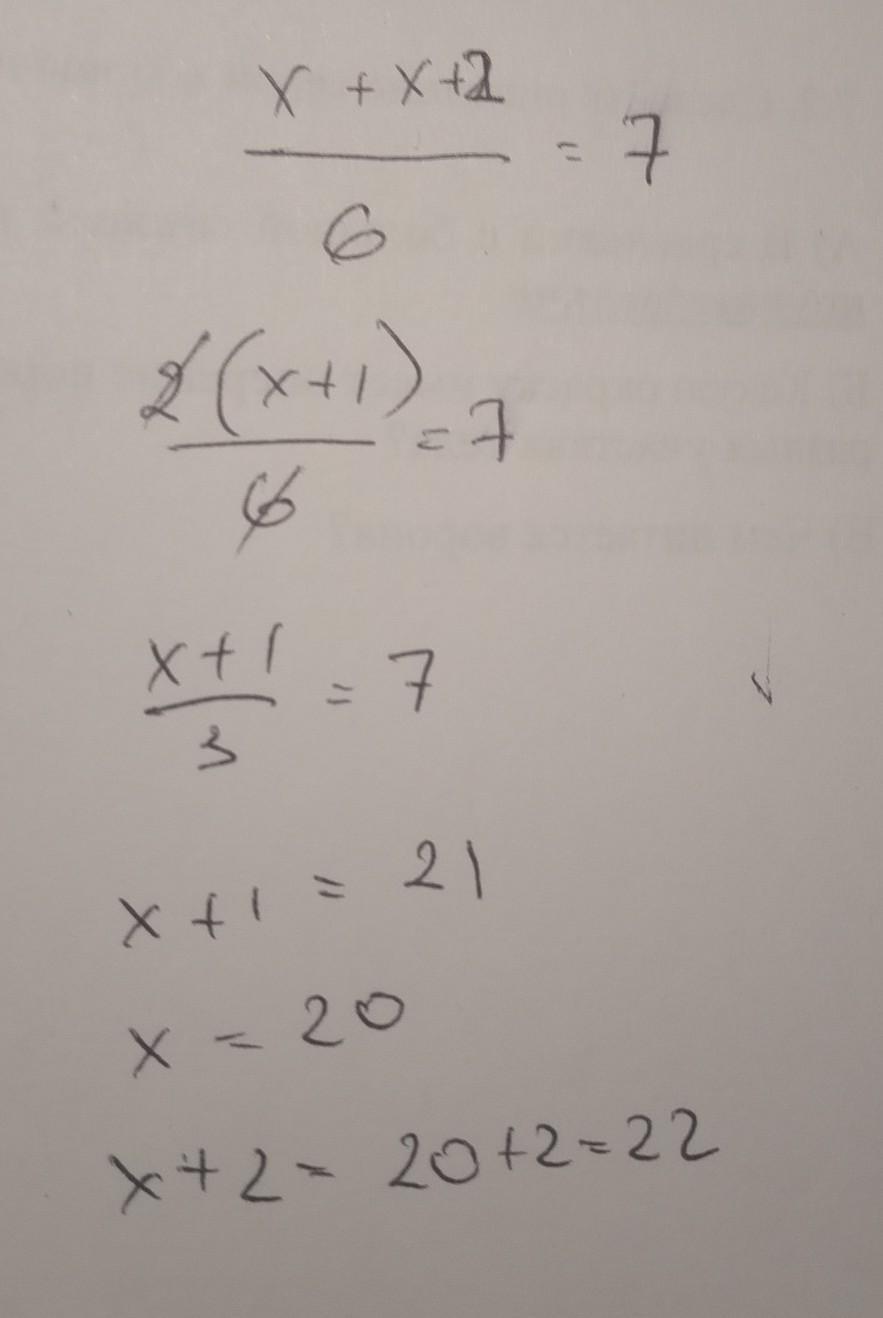 x + x + 2
6
= 7
2(x+1)
6
= 7
x+1
3
= 7
x + 1 = 21
x = 20
x + 2 = 20+2=22